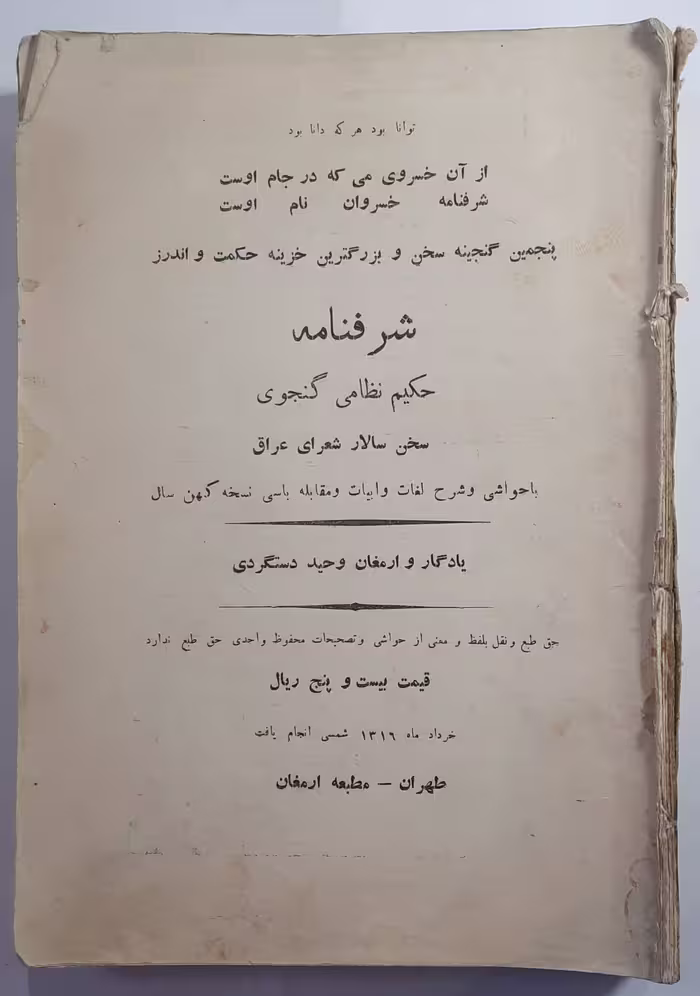 توانا بود هر که دانا بود
از آن خسروی می که در جام اوست
شرفنامه خسروان نام اوست
پنجمین گنجینه سخن و بزرگترین خزینه حکمت و اندرز
شرفنامه
حکیم نظامی گنجوی
سخن سالار شعرای عراق
باحواشی وشرح لغات وابیات ومقابله باسی نسخه کهن سال
یادگار و ارمغان وحید دستگردی
حق طبع ونقل بلفظ و معنی از حواشی وتصحیحات محفوظ واحدی حق طبع ندارد
قیمت بیست و پنج ریال
خرداد ماه ۱۳۱۶ شمسی انجام یافت
طهران — مطبعه ارمغان